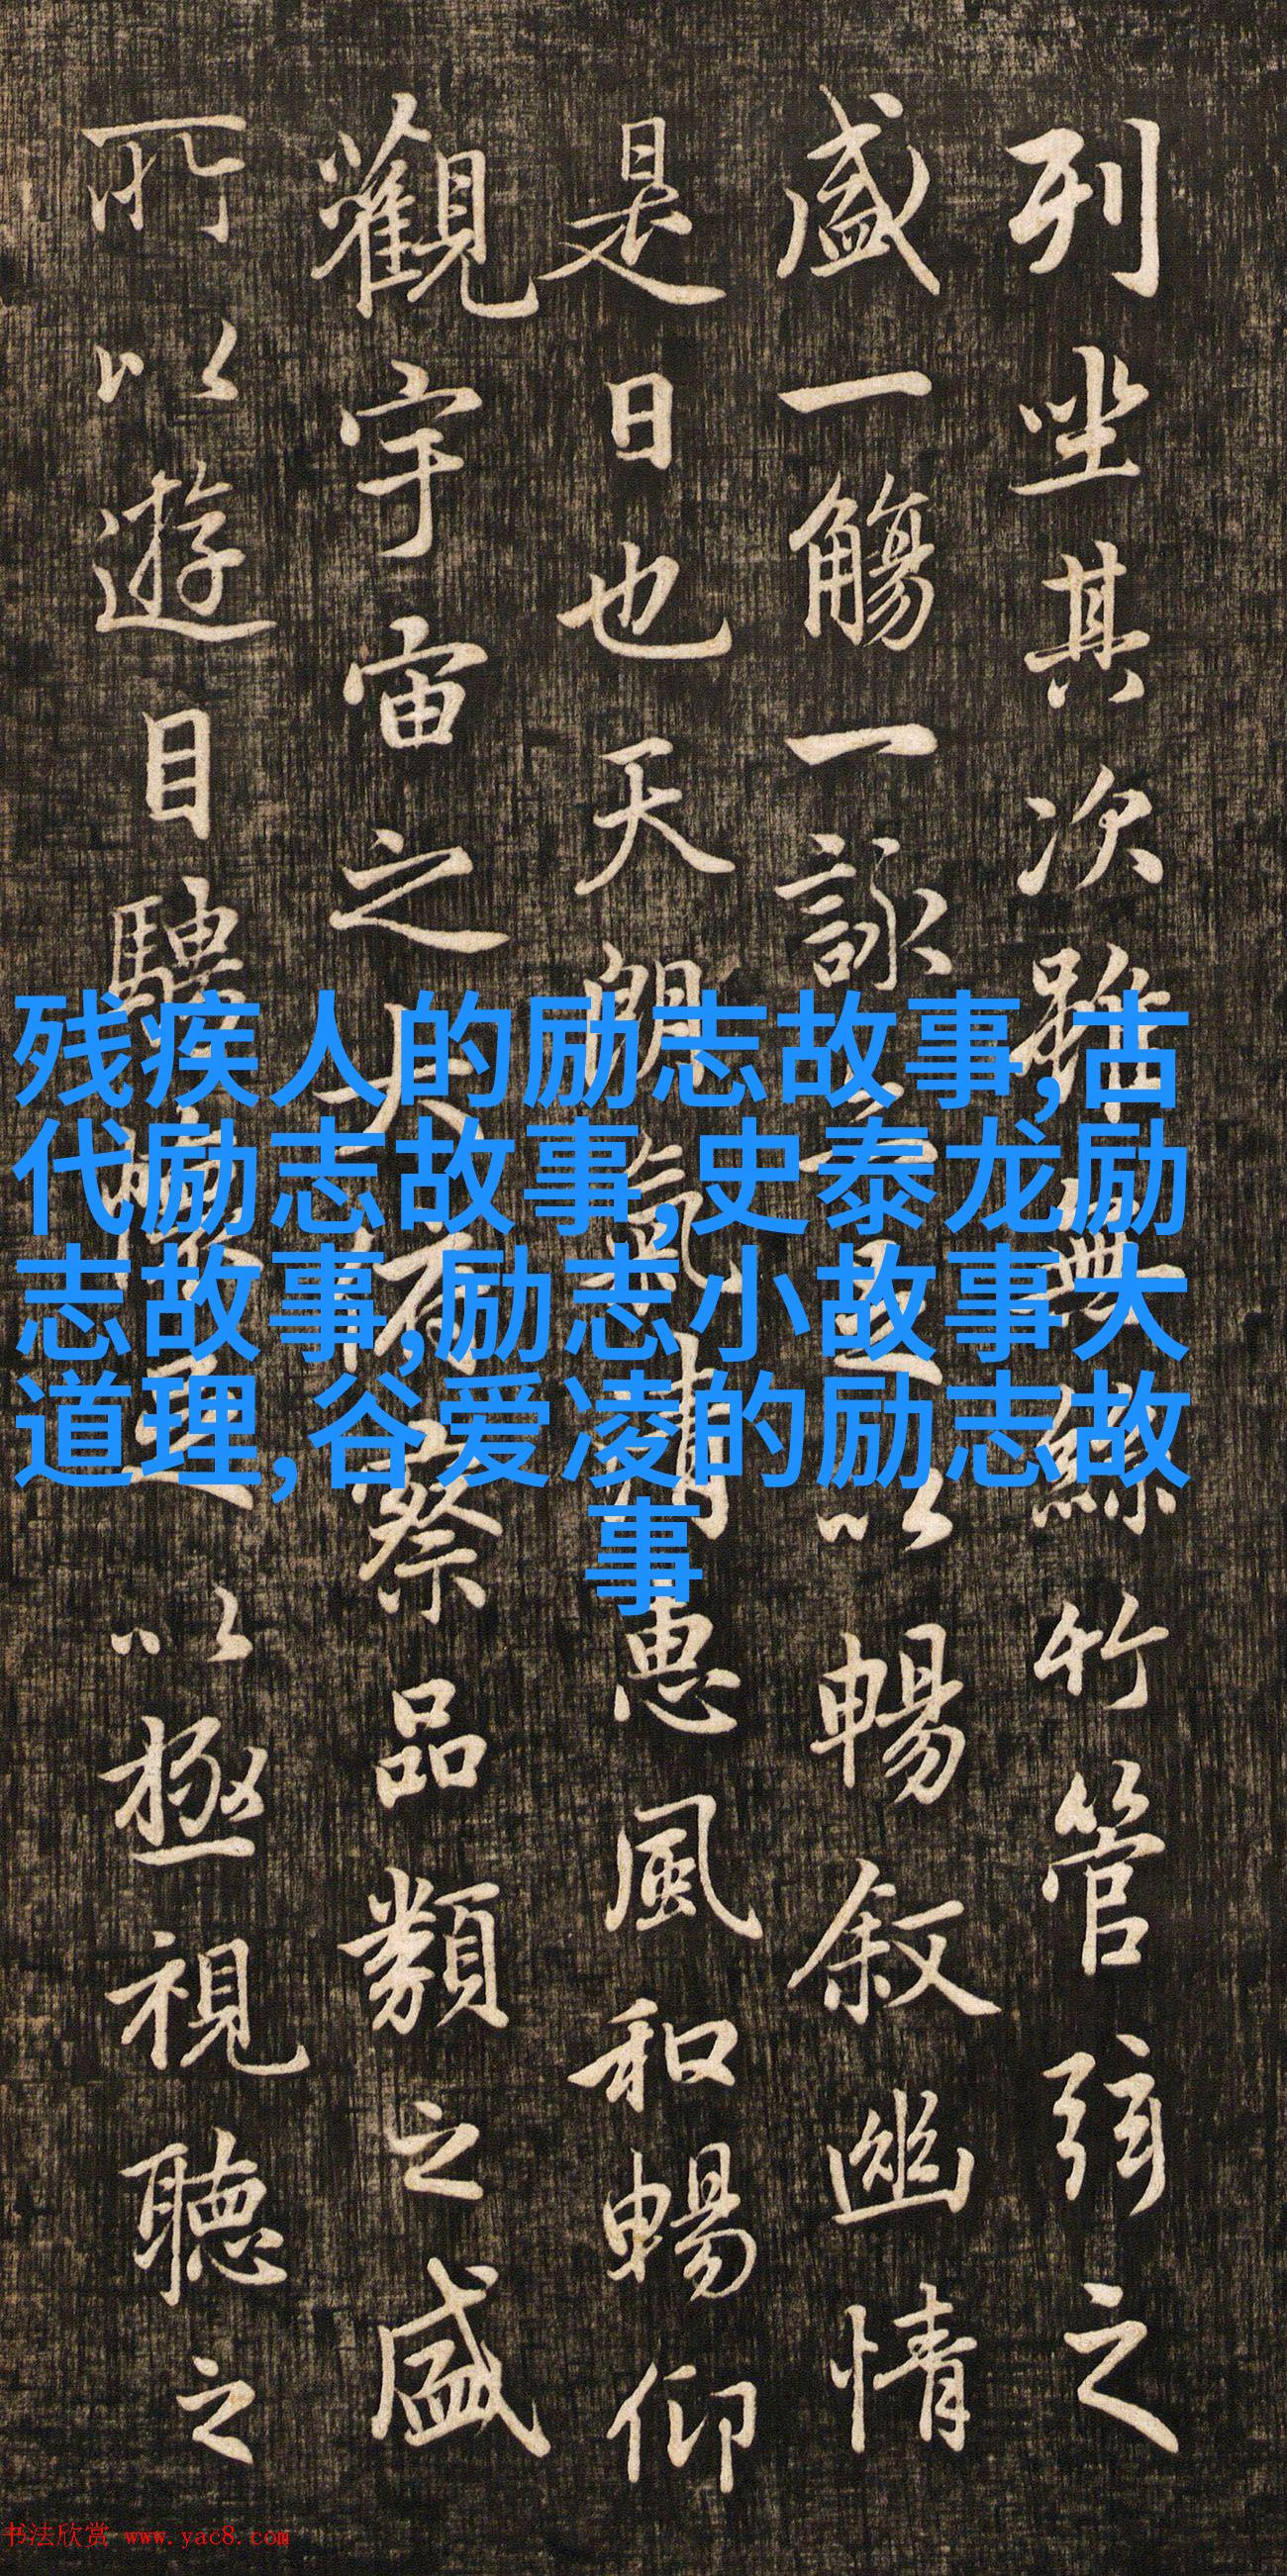 列坐其次雖無絲竹管弦之
盛一觴一詠亦足以暢叙幽情
是日也天朗氣清惠風和暢仰
觀宇宙之大俯察品類之盛
所以遊目騁懷足以極視聽之
残疾人的励志故事,古
代励志故事,史泰龙励
志故事,励志小故事大
道理,谷爱凌的励志故
事
书法欣赏 www.yac8.com